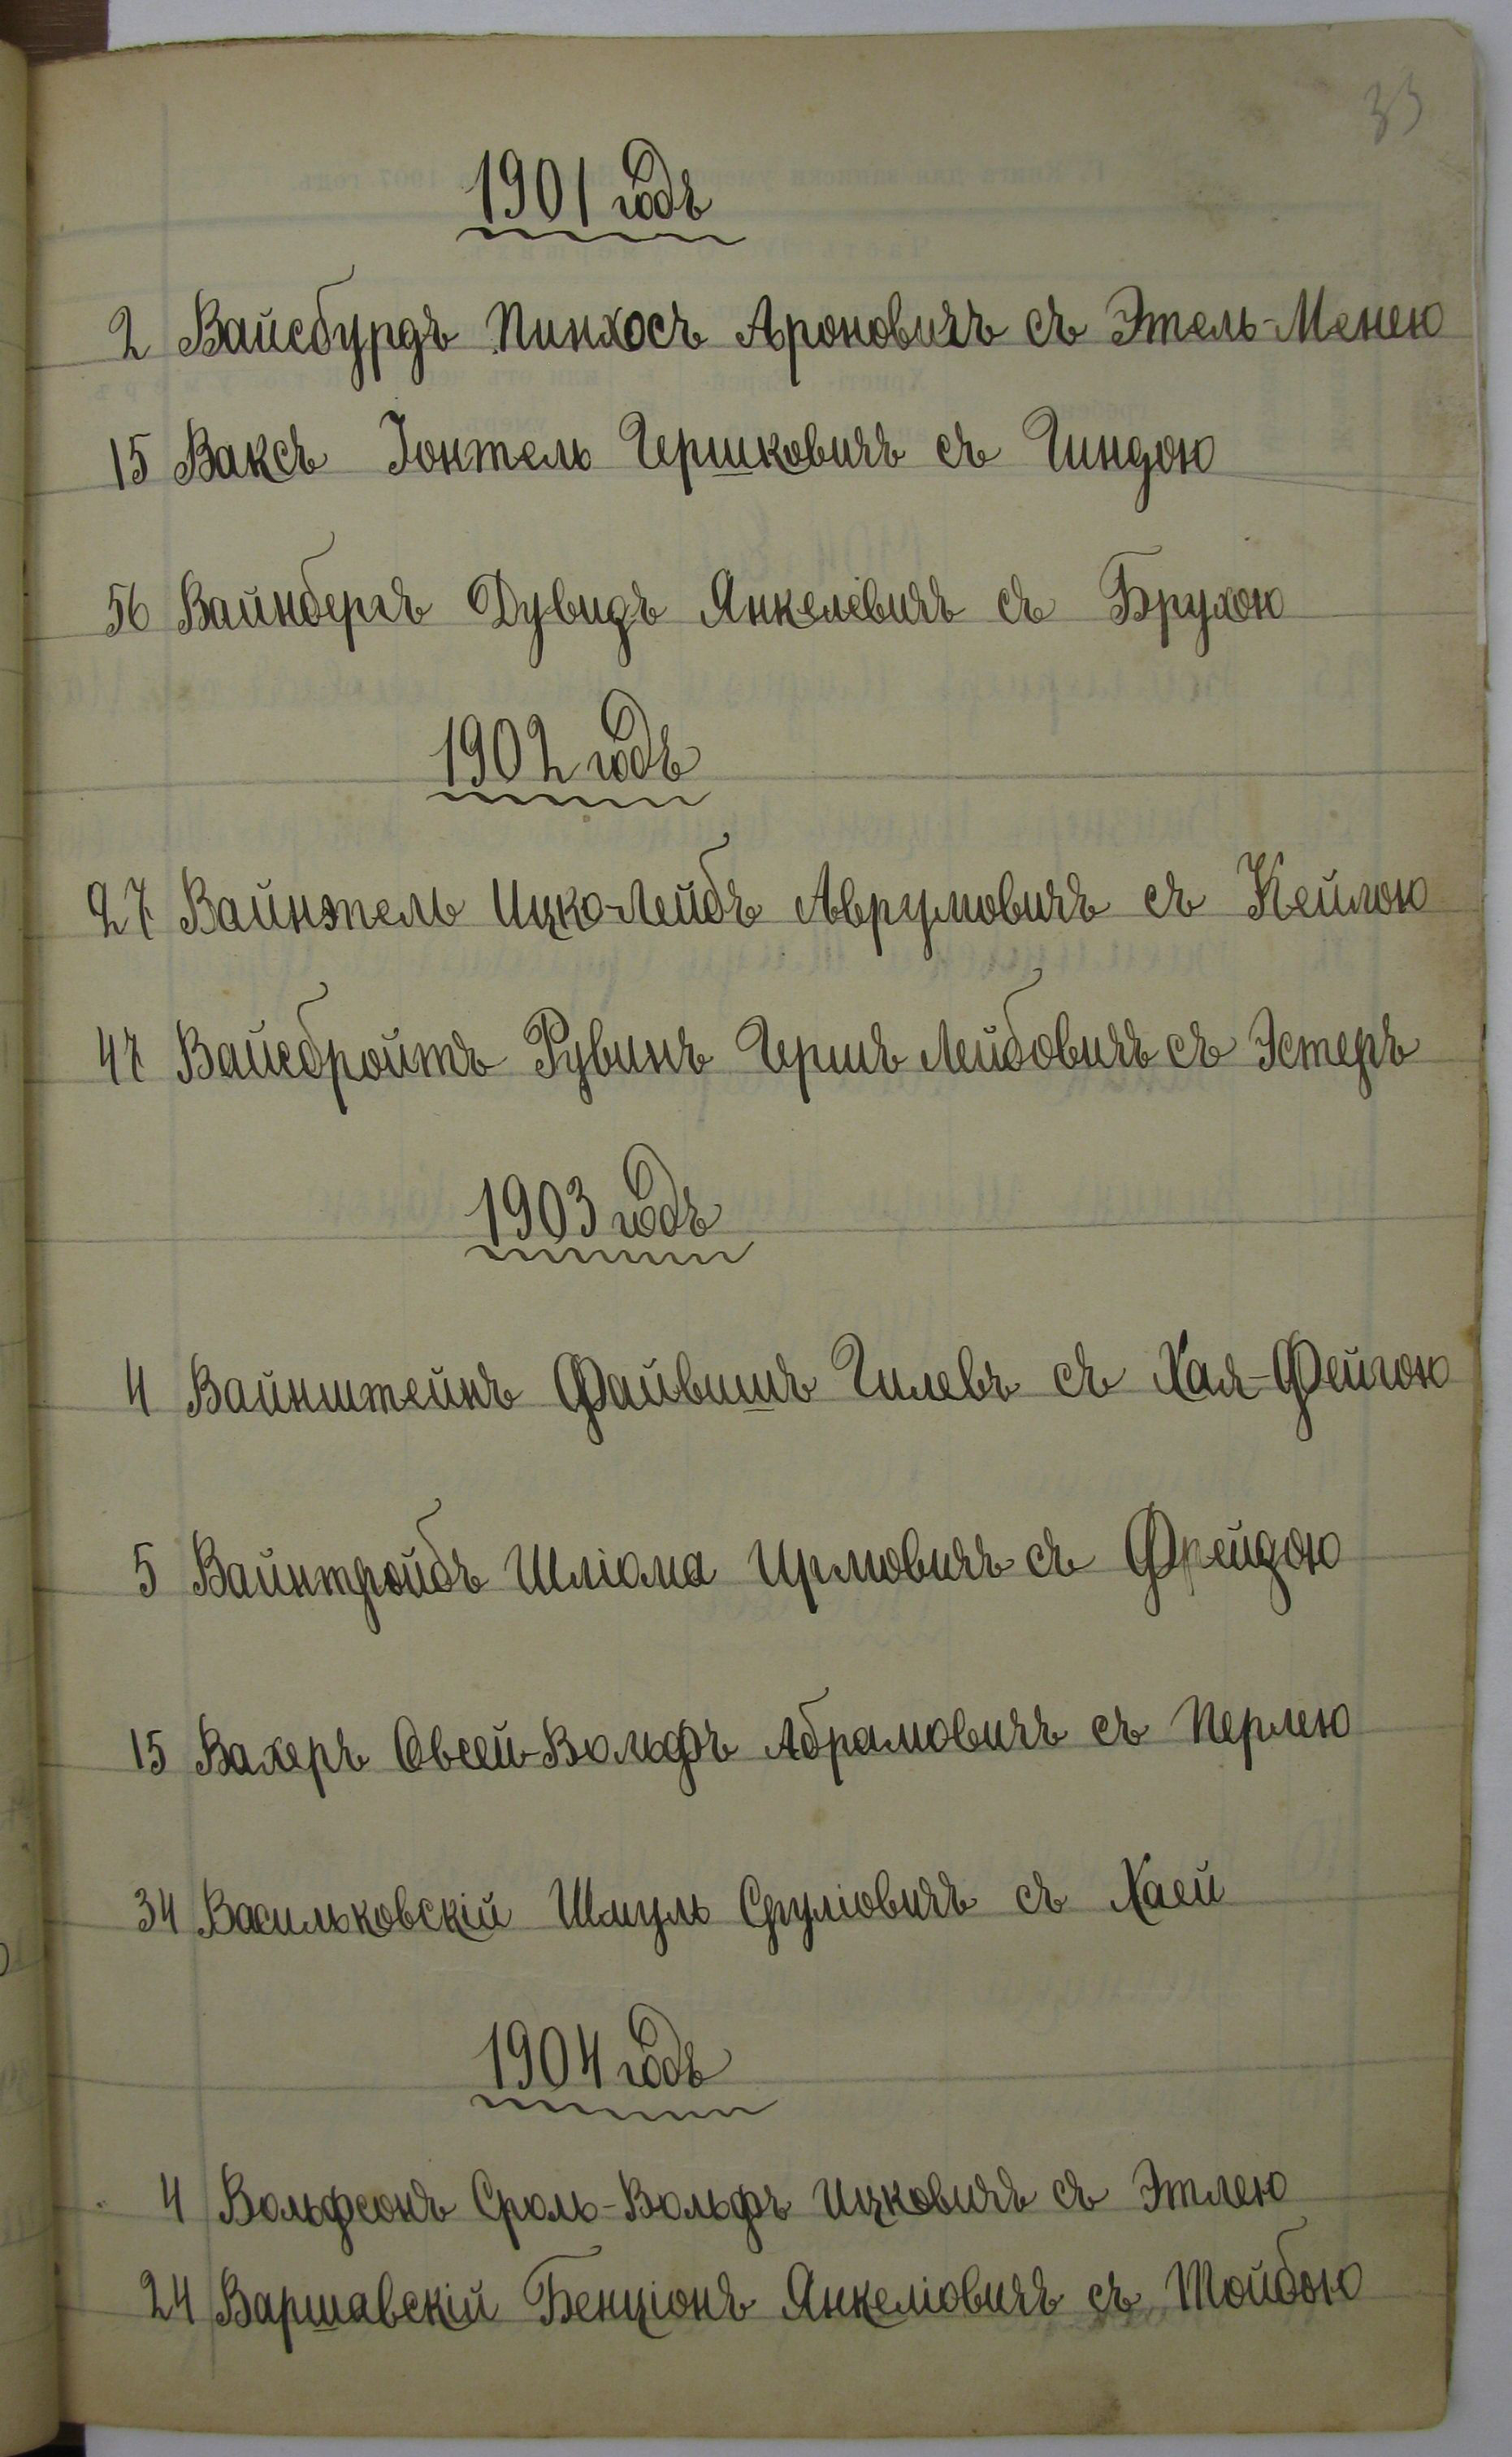 33
1901 годъ
2 Вайсбурдъ Пинхосъ Ароновичъ съ Этель-Менею
15 Ваксъ Іонтель Гершковичъ съ Гиндою
56 Вайнбергъ Дувидъ Янкелевичъ съ Брухою
1902 годъ
27 Вайнтель Ицко-Лейбъ Аврумовичъ съ Кейлою
47 Вайсбройтъ Рувинъ Гершъ Лейбовичъ съ Эстеръ
1903 годъ
4 Вайнштейнъ Файвишъ Гилевъ съ Хая-Фейгою
5 Вайнтройбъ Шліома Ирмовичъ съ Фрейдою
15 Вахеръ Овсей-Вольфъ Абрамовичъ съ Перлею
34 Васильковскій Шмуль Сруліовичъ съ Хаей
1904 годъ
4 Вольфсонъ Сроль-Вольфъ Ицковичъ съ Этлею
24 Варшавскій Бенціонъ Янкеліовичъ съ Тойбою